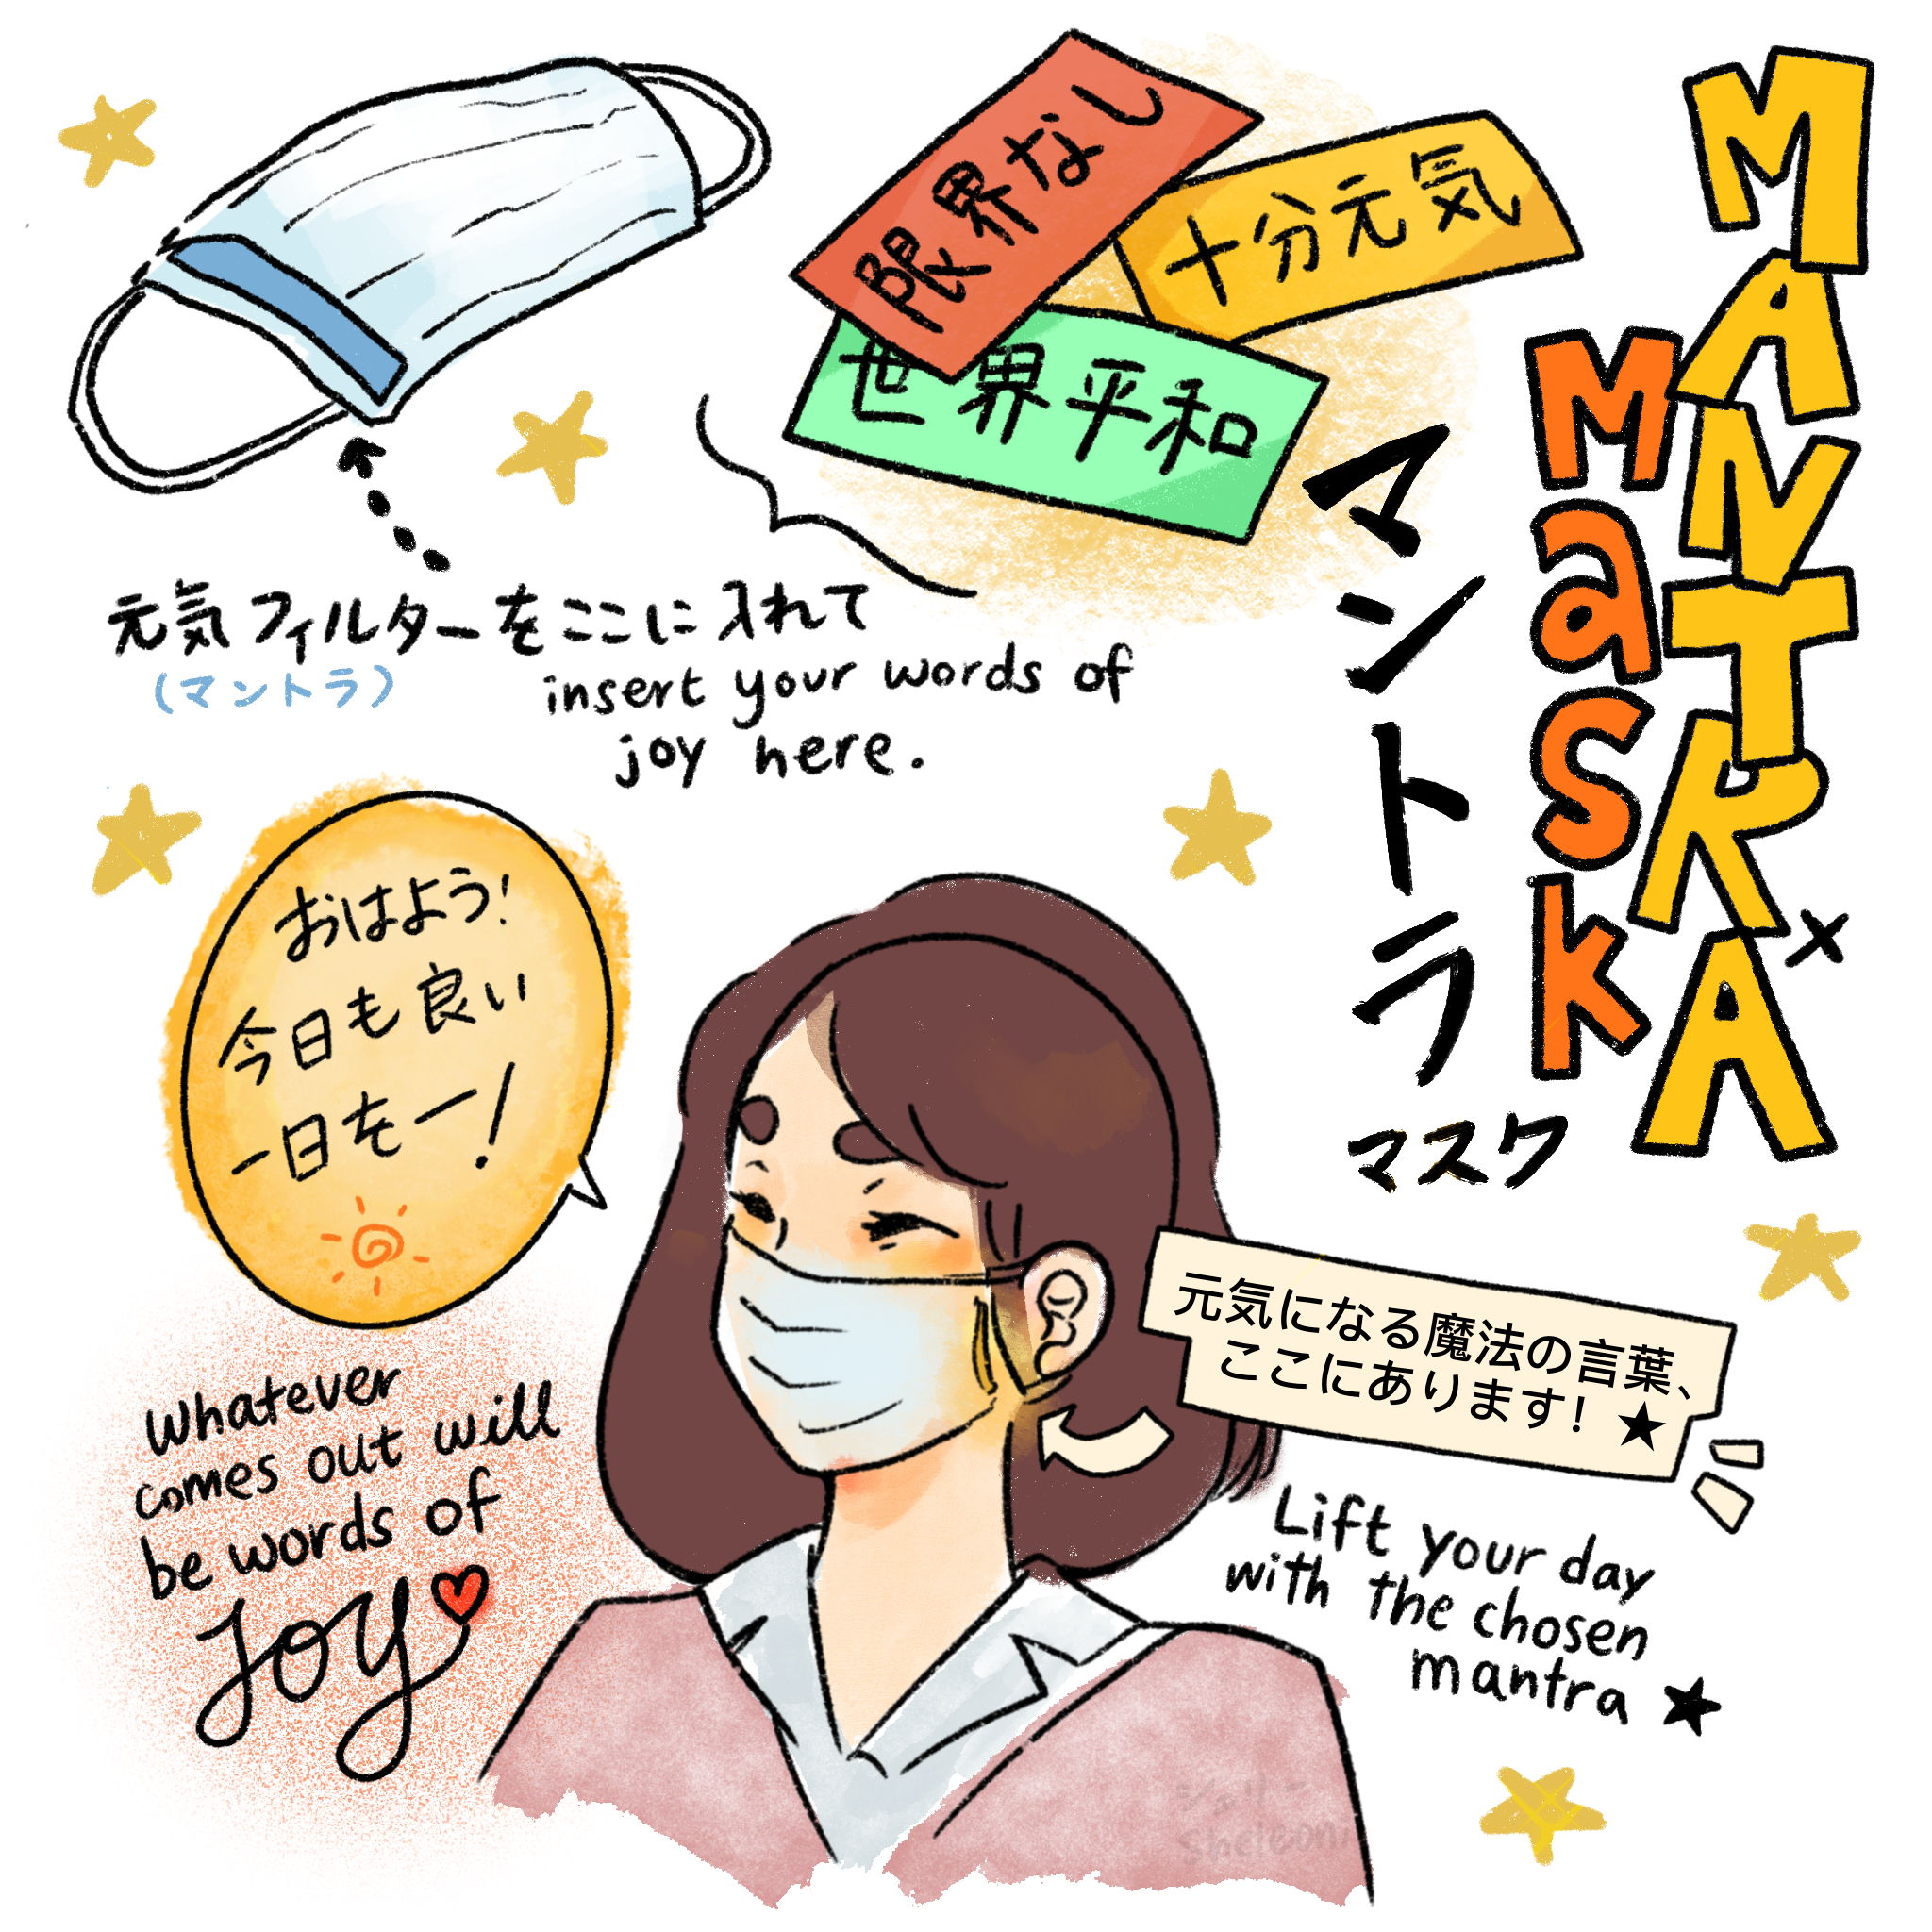 MANTRA
Mask
マントラ
マスク
限界なし
十分元気
世界平和
元気フィルターをここに入れて
(マントラ)
insert your words of
joy here.
おはよう!
今日も良い
一日をー!
Whatever
comes out will
be words of
Joy
元気になる魔法の言葉、
ここにあります! ★
Lift your day
with the chosen
mantra ★
Sheleoni